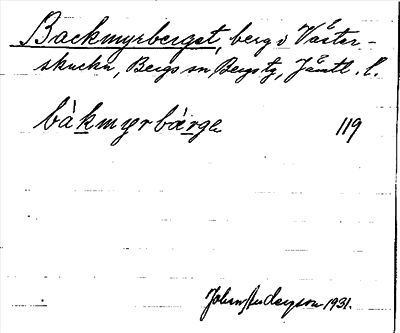 Backmyrberget, berg i Väster-
skucku, Bergs sn Bergs tg, Jämtl. l.
bàkmyrbàrge 119
John Anderson 1931.